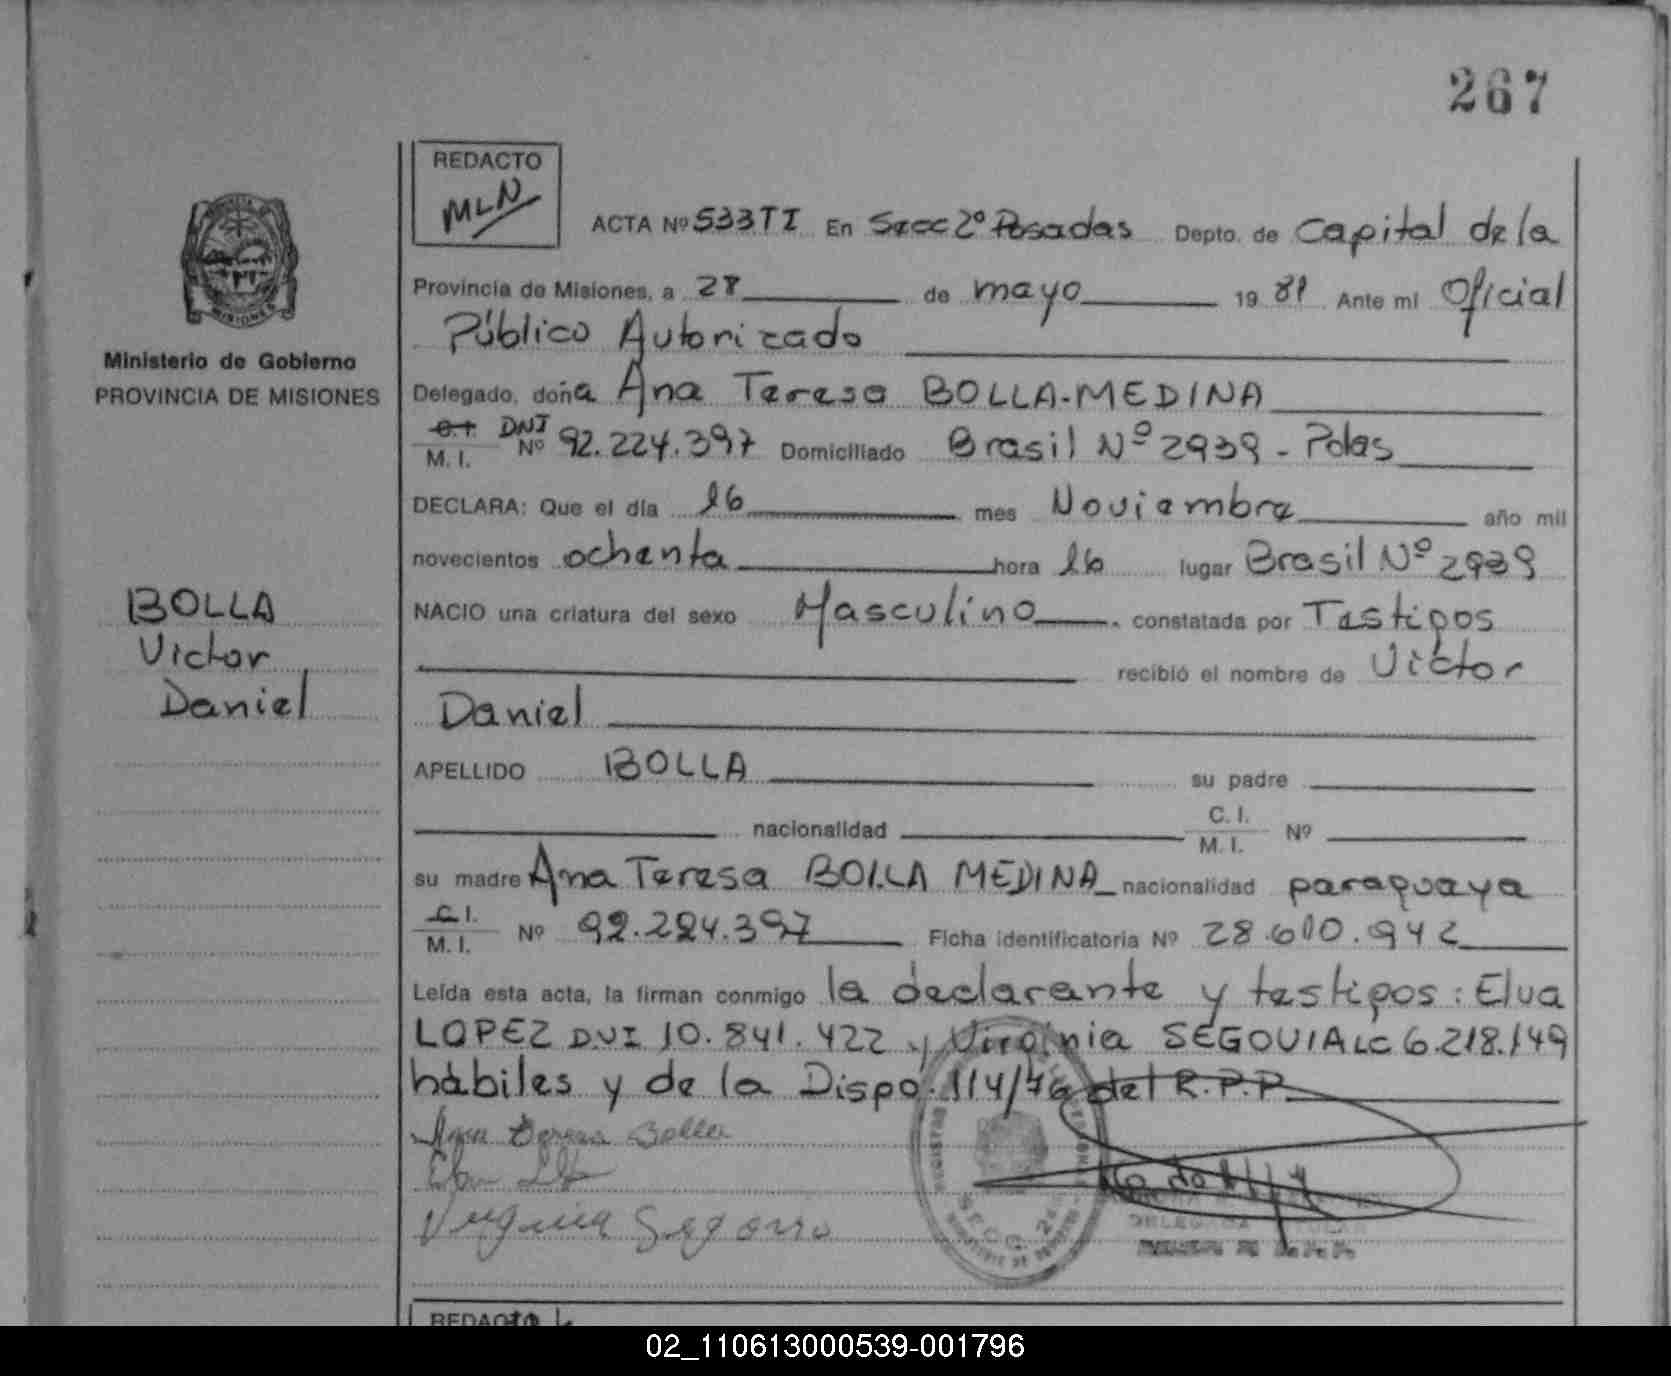 267
REDACTO
MLN
ACTA Nº 533TI En Secc 2º Posadas Depto. de Capital de la
Provincia de Misiones, a 28 de mayo 19 81 Ante mi Oficial
Público Autorizado
Ministerio de Gobierno
PROVINCIA DE MISIONES
Delegado, doña Ana Teresa BOLLA-MEDINA
C.I. DNI
M. I. Nº 92.224.397 Domiciliado Brasil Nº 2939 - Pdas
DECLARA: Que el día 16 mes Noviembre año mil
novecientos ochenta hora 16 lugar Brasil Nº 2939
BOLLA
Victor
Daniel
NACIO una criatura del sexo Masculino constatada por Testigos
recibió el nombre de Victor
Daniel
APELLIDO BOLLA su padre
nacionalidad C. I.
M. I. Nº
su madre Ana Teresa BOLLA MEDINA nacionalidad paraguaya
C.I.
M. I. Nº 92.224.397 Ficha identificatoria Nº 28.600.942
Leída esta acta, la firman conmigo la declarante y testigos: Elva
LOPEZ DNI 10.841.422 y Virginia SEGOVIA LC 6.218.149
hábiles y de la Dispo. 114/76 del R.P.P.
Ana Teresa Bolla
Virginia Segovia
SECC. 2ª
DELEGADA TITULAR
REDACTO
02_110613000539-001796